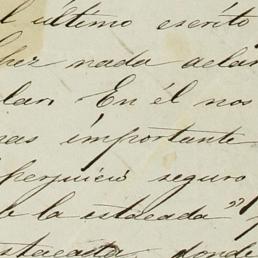 l último escrito
per nada aclar
lar. En él nos
mas importante
perjuicio seguro
e la estacada"
stacada, donde